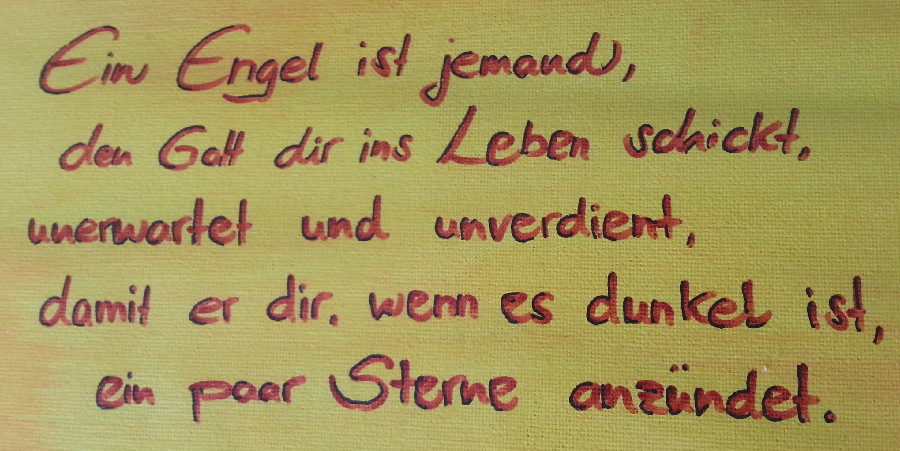 Ein Engel ist jemand,
den Gott dir ins Leben schickt,
unerwartet und unverdient,
damit er dir, wenn es dunkel ist,
ein paar Sterne anzündet.